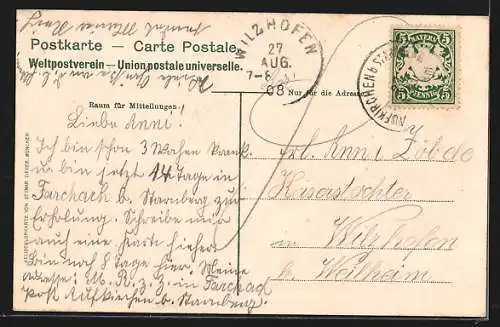 Postkarte – Carte Postale
Weltpostverein – Union postale universelle.
WILZHOFEN
27
AUG.
7-8
08
AUFKIRCHEN b. STA
BAYERN
5 5
PFENNIG
Nur für die Adresse
Raum für Mitteilungen
Liebe Anni!
Ich bin schon 3 Wochen krank
u bin jetzt 14 tage in
Farchach b. Starnberg zur
Erholung. Schreibe mir
auch eine Karte hieher
Bin noch 8 tage hier. Meine
Adresse: M. R. z. Z. in Farchach
post Aufkirchen b. Starnberg.
Frl. Anni Zöbde
in Wilzhofen
b. Weilheim